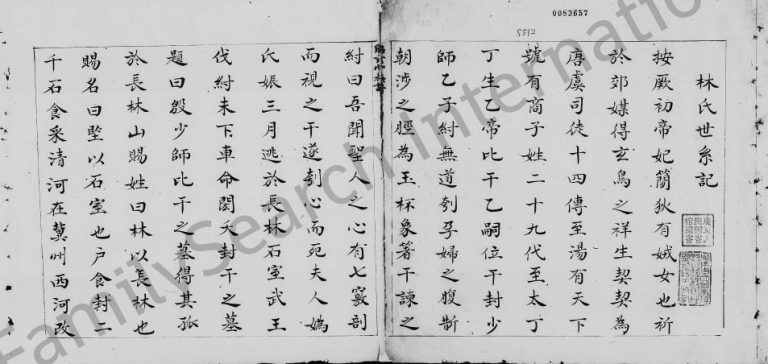 0083657
5512
林氏世系記
按厥初帝妃簡狄有娀女也祈
於郊媒得玄鳥之祥生契契為
唐虞司徒十四傳至湯有天下
號有商子姓二十九代至太丁
丁生乙帝比干乙嗣位干封少
師乙子紂無道刳孕婦之腹斮
朝涉之脛為玉杯象箸干諫之
紂曰吾聞聖人之心有七竅剖
而視之干遂刳心而死夫人媯
氏娠三月逃於長林石室武王
伐紂未下車命閎夭封干之墓
題曰殷少師比干之墓得其孤
於長林山賜姓曰林以長林也
賜名曰堅以石室也戶食封二
千石食采清河在冀州西河改
FamilySearch International
FamilySearch